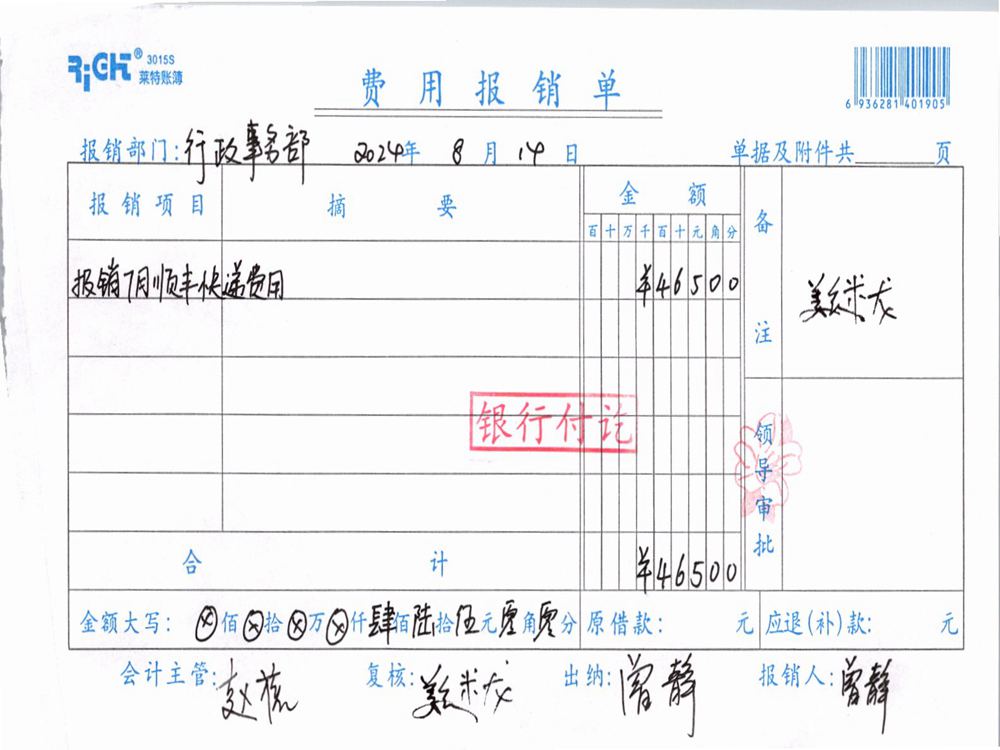 RiGHT® 3015S
莱特账簿
费用报销单
6 936281 401905
报销部门:行政事务部 2024年 8月 14日 单据及附件共 页
报销项目 摘要 金额 备注
百十万千百十元角分
报销7月顺丰快递费用 ¥46500
银行付讫
领导审批
合计 ¥46500
金额大写: ⊗佰⊗拾⊗万⊗仟肆佰陆拾伍元零角零分 原借款: 元 应退(补)款: 元
会计主管: 赵 复核: 出纳: 曾静 报销人: 曾静